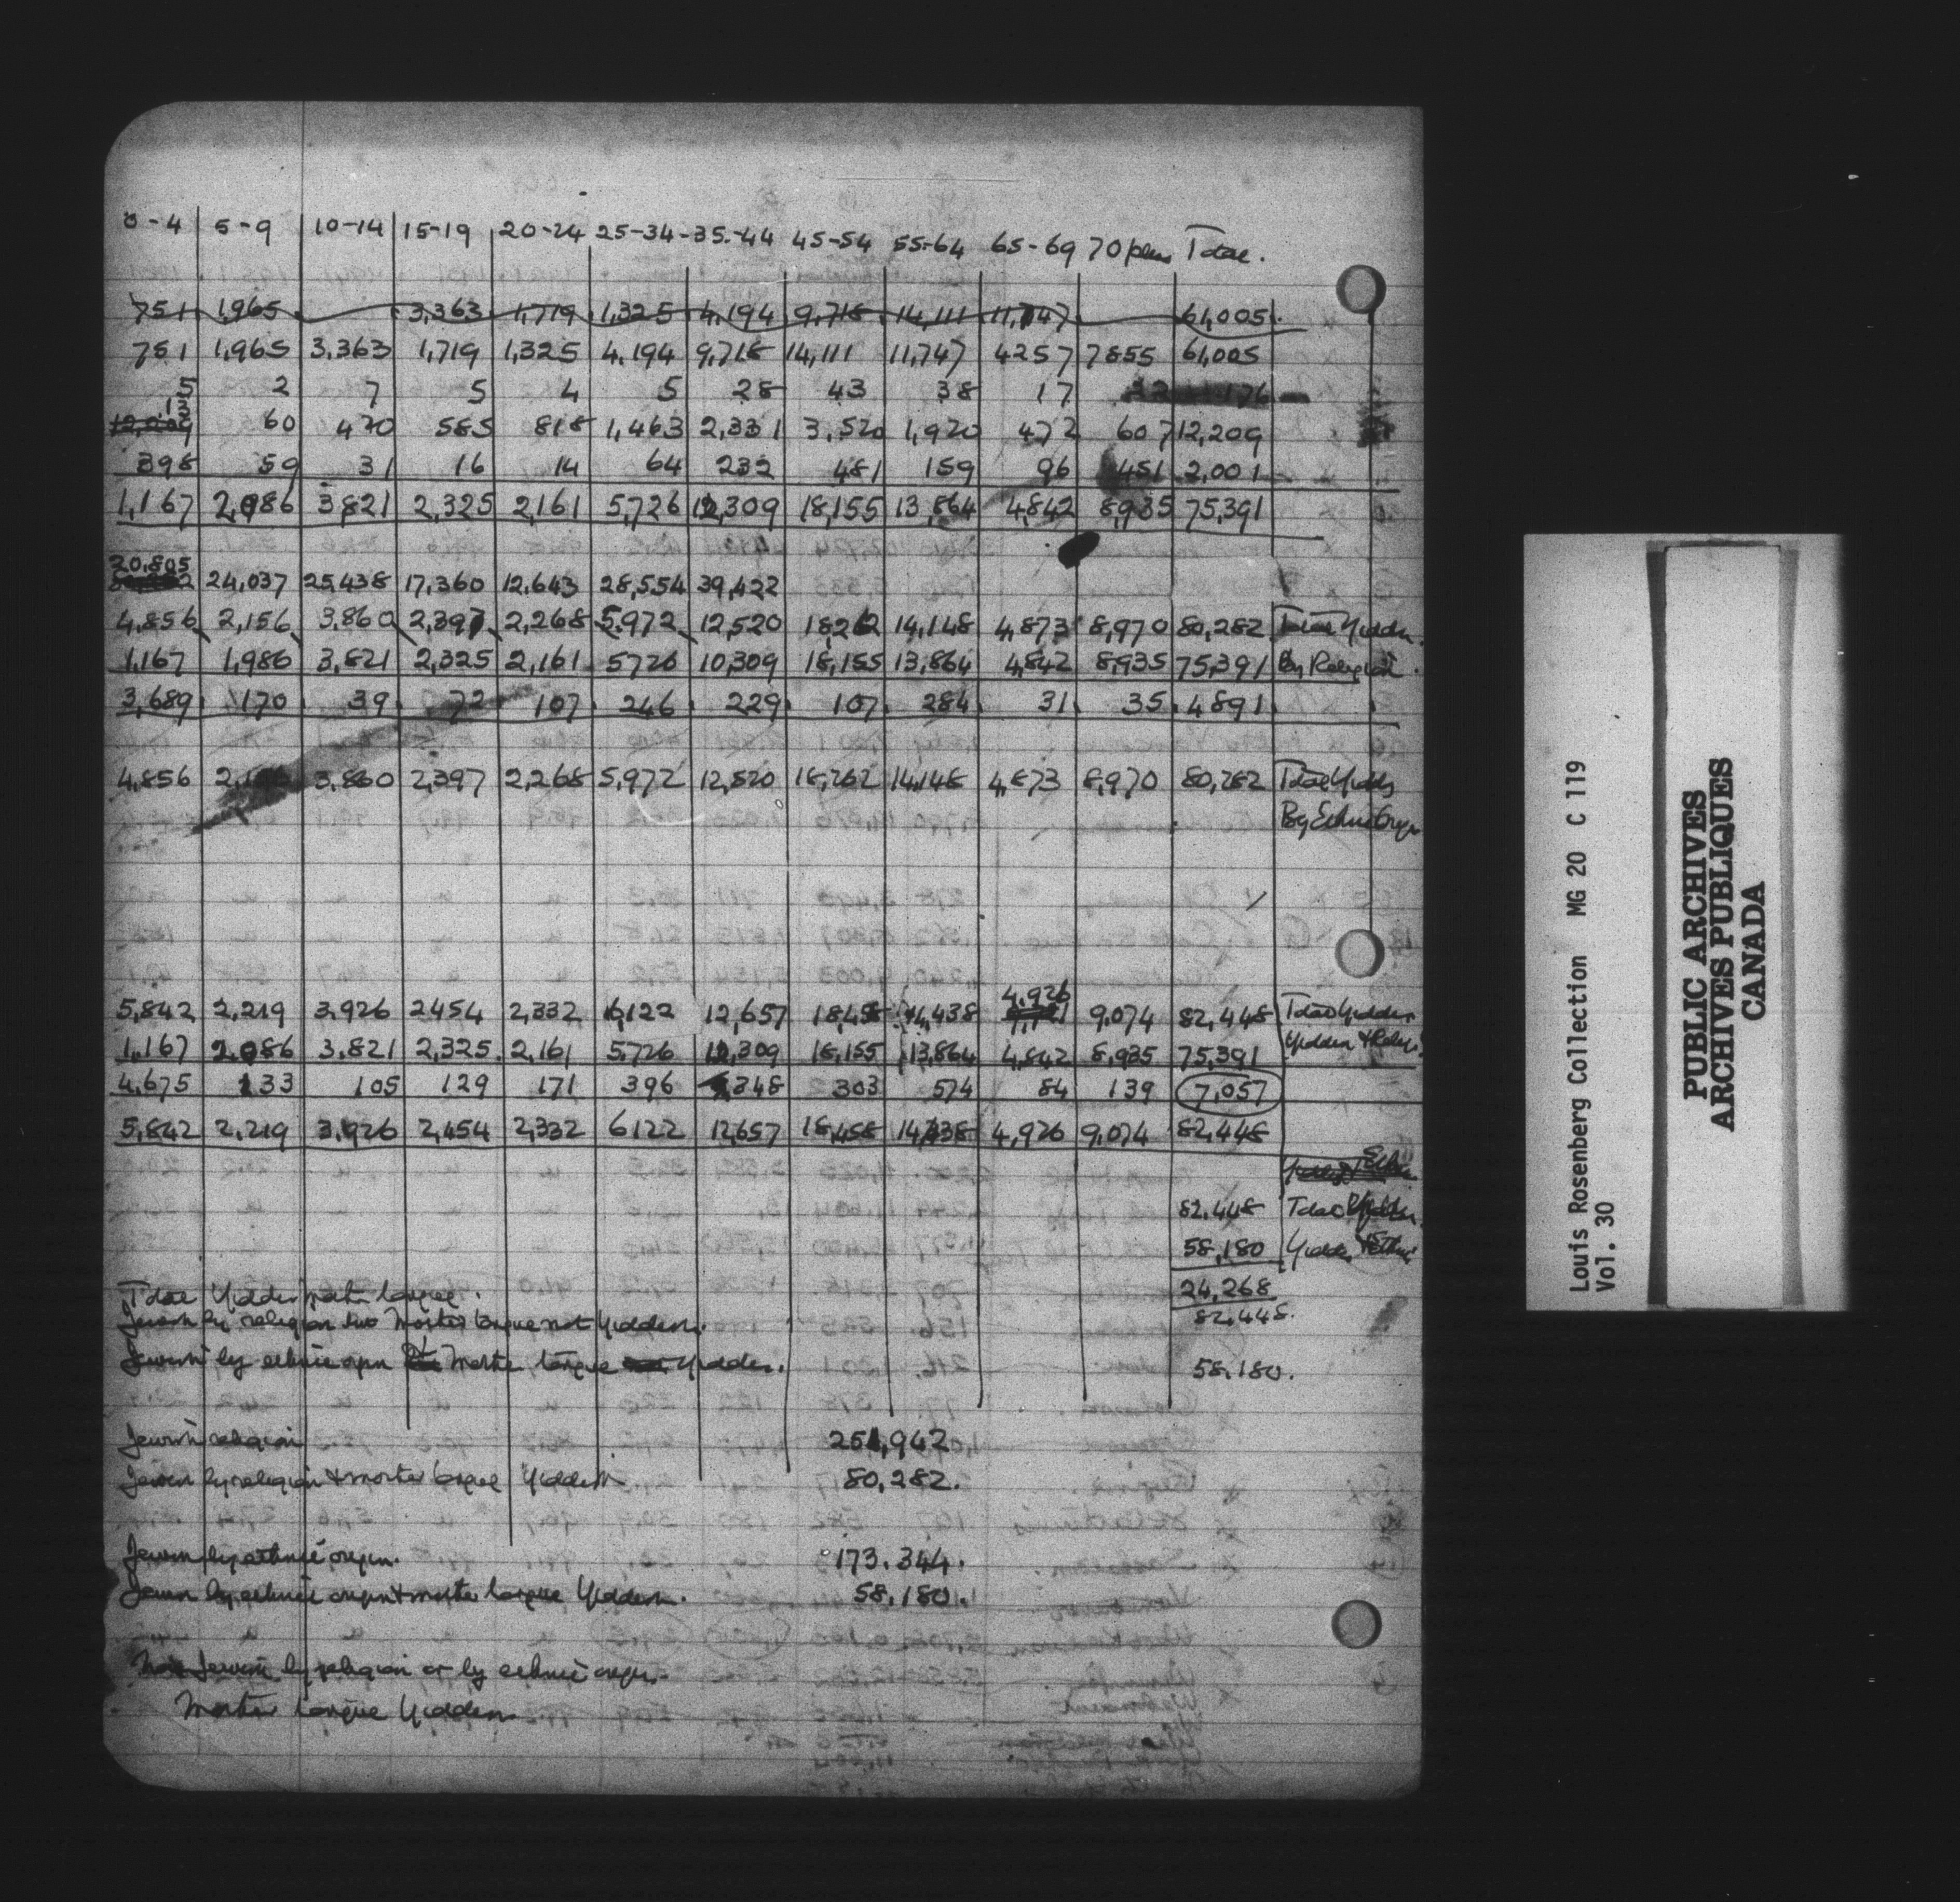 0-4 5-9 10-14 15-19 20-24 25-34 35-44 45-54 55-64 65-69 70 plus Total.
751 1,965 3,363 1,719 1,325 4,194 9,718 14,111 11,747 61,005
751 1,965 3,363 1,719 1,325 4,194 9,718 14,111 11,747 4257 7855 61,005
5 2 7 5 4 5 28 43 38 17 22 176
60 420 585 818 1,463 2,331 3,520 1,920 472 607 12,209
398 59 31 16 14 64 232 481 159 96 451 2,001
1,167 2,086 3,821 2,325 2,161 5,726 12,309 18,155 13,864 4,842 8,935 75,391
20,805
24,037 25,438 17,360 12,643 28,554 39,422
4,856 2,156 3,860 2,397 2,268 5,972 12,520 18,262 14,148 4,873 8,970 80,282 Total Yiddish.
1,167 1,986 3,821 2,325 2,161 5726 10,309 18,155 13,864 4,842 8,935 75,391 By Religion.
3,689 170 39 72 107 246 229 107 284 31 35 4891
4,856 2,156 3,860 2,397 2,268 5,972 12,520 18,262 14,148 4,873 8,970 80,282 Total Yiddish
By Ethnic Origin
4,926
5,842 2,219 3,926 2454 2,332 6,122 12,657 18,458 14,438 9,074 82,448 Total Yiddish
1,167 2,086 3,821 2,325 2,161 5,726 12,309 18,155 13,864 4,842 8,935 75,391 Yiddish + Relig.
4,675 133 105 129 171 396 348 303 574 84 139 7,057
5,842 2,219 3,926 2,454 2,332 6122 12,657 18,458 14,438 4,926 9,074 82,448
82,448 Total Yiddish
58,180 Yiddish + Ethnic
24,268
Total Yiddish mother tongue. 82,448.
Jewish by religion but Mother tongue not Yiddish.
Jewish by ethnic origin Mother tongue Yiddish. 58,180.
Jewish religion 251,942
Jewish by religion & mother tongue Yiddish 80,282.
Jewish by ethnic origin. 173,344.
Jewish by ethnic origin & mother tongue Yiddish. 58,180.
Not Jewish by religion or by ethnic origin.
Mother tongue Yiddish
Louis Rosenberg Collection MG 20 C 119
Vol. 30
PUBLIC ARCHIVES
ARCHIVES PUBLIQUES
CANADA